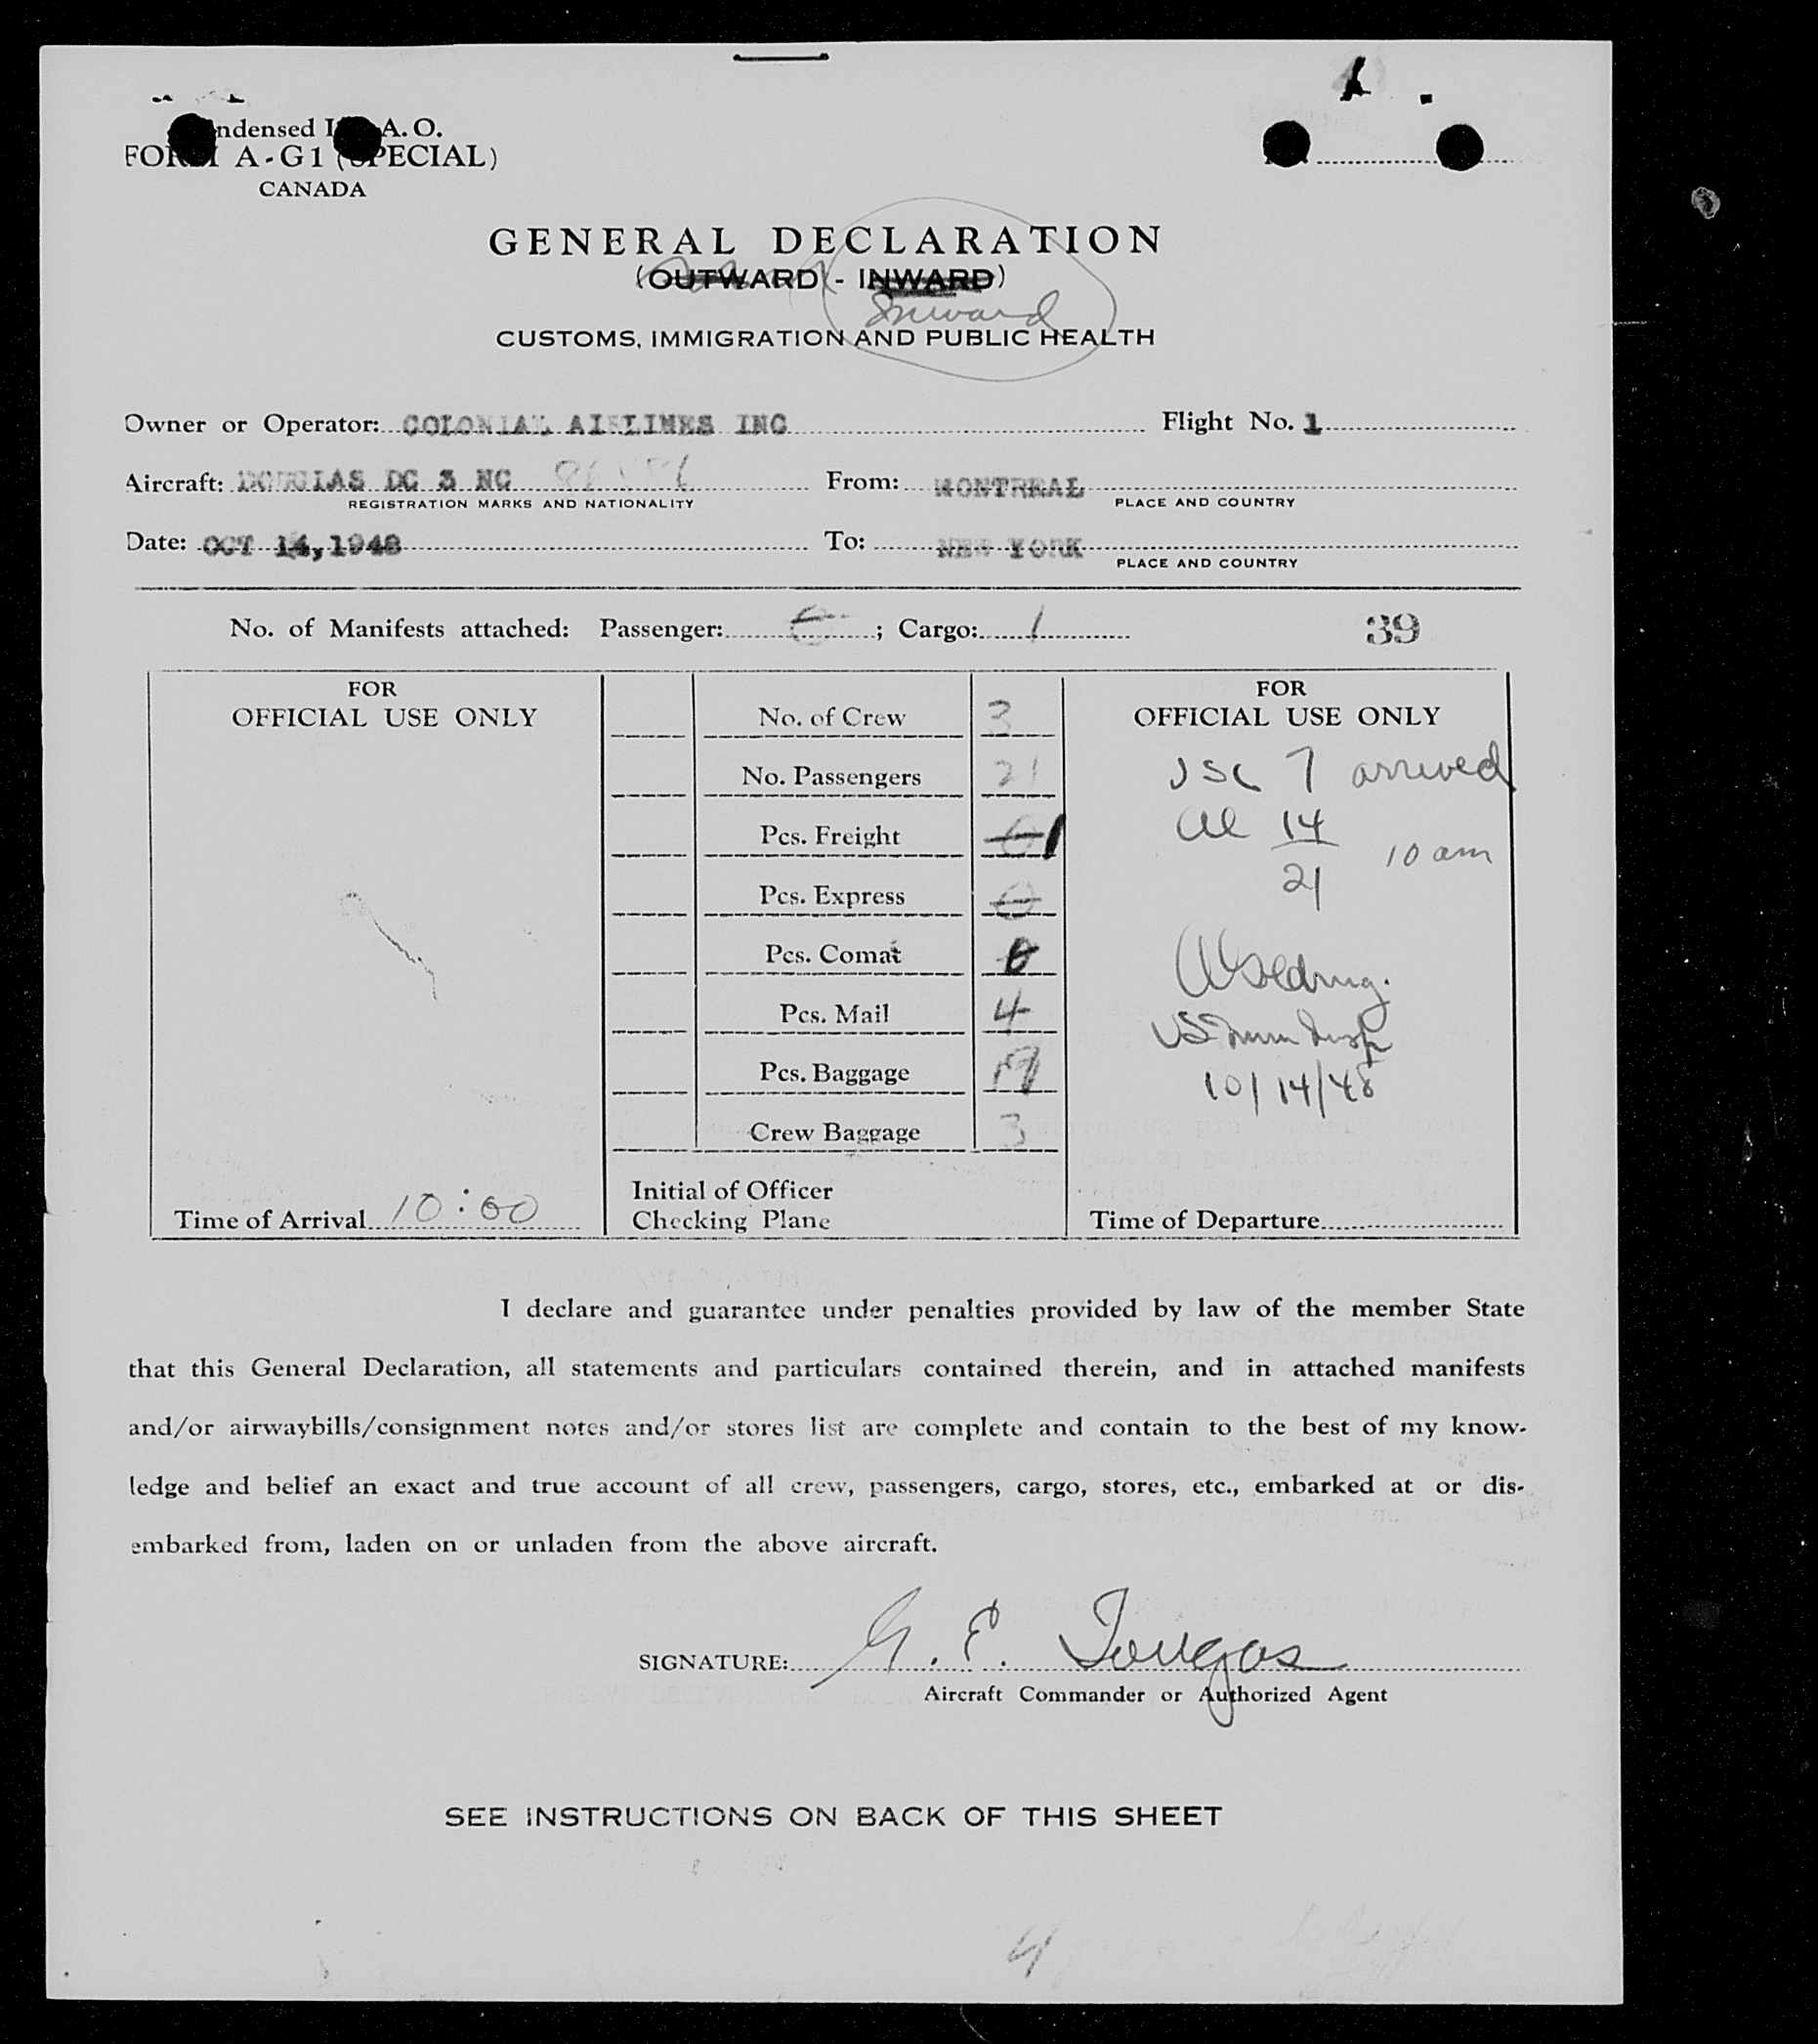 ndensed I A. O.
FORM A-G1 (SPECIAL)
CANADA
GENERAL DECLARATION
(OUTWARD - INWARD)
Inward
CUSTOMS, IMMIGRATION AND PUBLIC HEALTH
Owner or Operator: COLONIAL AIRLINES INC Flight No. 1
Aircraft: DOUGLAS DC 3 NC From: MONTREAL
REGISTRATION MARKS AND NATIONALITY PLACE AND COUNTRY
Date: OCT 14, 1948 To: NEW YORK
PLACE AND COUNTRY
No. of Manifests attached: Passenger: ; Cargo: 1 39
FOR
OFFICIAL USE ONLY
Time of Arrival 10:00
No. of Crew 3
No. Passengers 21
Pcs. Freight 1
Pcs. Express 0
Pcs. Comat 0
Pcs. Mail 4
Pcs. Baggage 19
Crew Baggage 3
Initial of Officer
Checking Plane
FOR
OFFICIAL USE ONLY
USC 7 arrived
al 14 10 am
21
US Imm Insp
10/14/48
Time of Departure
I declare and guarantee under penalties provided by law of the member State
that this General Declaration, all statements and particulars contained therein, and in attached manifests
and/or airwaybills/consignment notes and/or stores list are complete and contain to the best of my know-
ledge and belief an exact and true account of all crew, passengers, cargo, stores, etc., embarked at or dis-
embarked from, laden on or unladen from the above aircraft.
SIGNATURE: G. E. Tougas
Aircraft Commander or Authorized Agent
SEE INSTRUCTIONS ON BACK OF THIS SHEET
4